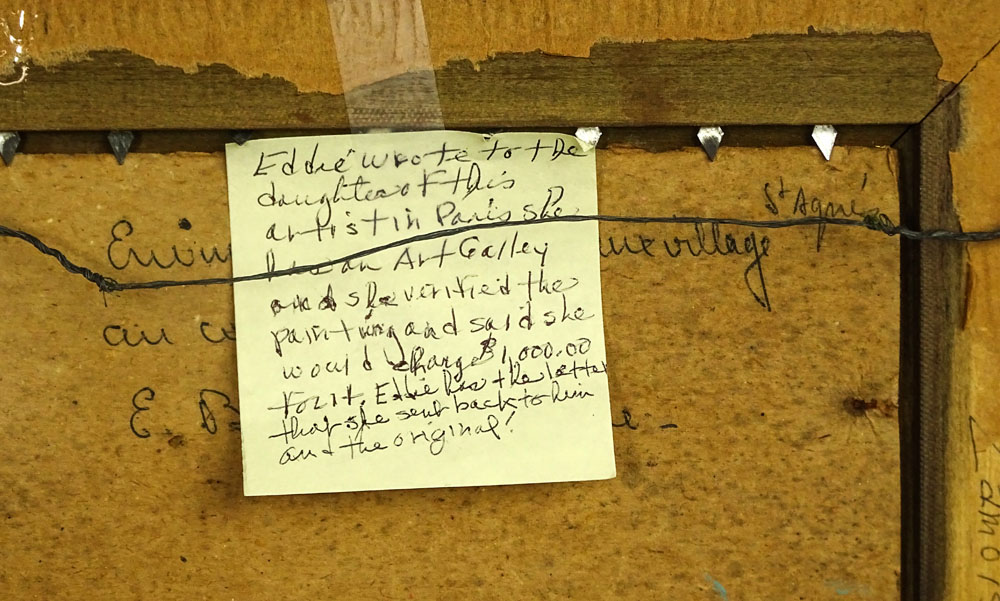 Eddie wrote to the
daughter of this
artist in Paris she
has an Art Galley
and she verified the
painting and said she
would charge $1,000.00
for it. Eddie has the letter
that she sent back to him
and the original!
St Agnès
village
au
E. B